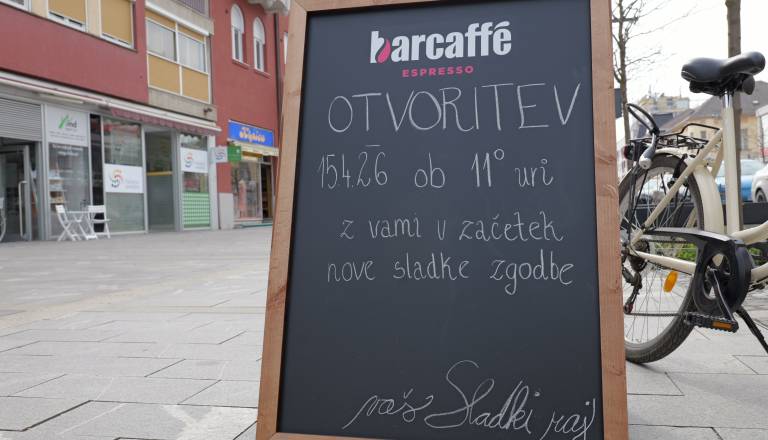 barcaffé
ESPRESSO
OTVORITEV
15.4.26 ob 11° uri
z vami v začetek
nove sladke zgodbe
vaš Sladki raj